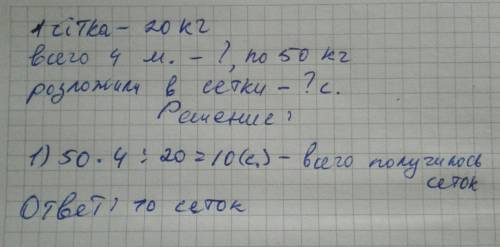 1 сітка - 20 кг
всего 4 м. - ?, по 50 кг
розложили в сетки - ? с.
Решение:
1) 50 · 4 : 20 = 10 (с.) - всего получилось
сеток
Ответ: 10 сеток